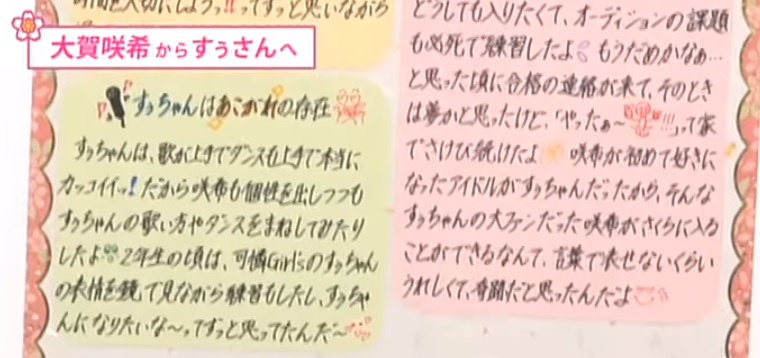 時間を大切にしようっ!!ってずっと思いながら
大賀咲希からすぅさんへ
すぅちゃんはあこがれの存在
すぅちゃんは、歌が上手でダンスも上手で本当に
カッコイイッ!だから咲希も個性を出しつつも
すぅちゃんの歌い方やダンスをまねしてみたり
したよ 2年生の頃は、可憐Girl'sのすぅちゃん
の表情を鏡で見ながら練習もしたし、すぅちゃ
んになりたいな〜ってずっと思ってたんだ〜
どうしても入りたくて、オーディションの課題
も必死で練習したよ もうだめかなぁ…
と思った頃に合格の連絡が来て、そのとき
は夢かと思ったけど、「やったぁ〜!!!」って家
でさけび続けたよ 咲希が初めて好きに
なったアイドルがすぅちゃんだったから、そんな
すぅちゃんの大ファンだった咲希がさくらに入る
ことができるなんて、言葉で表せないくらい
うれしくて、奇跡だと思ったんだよ